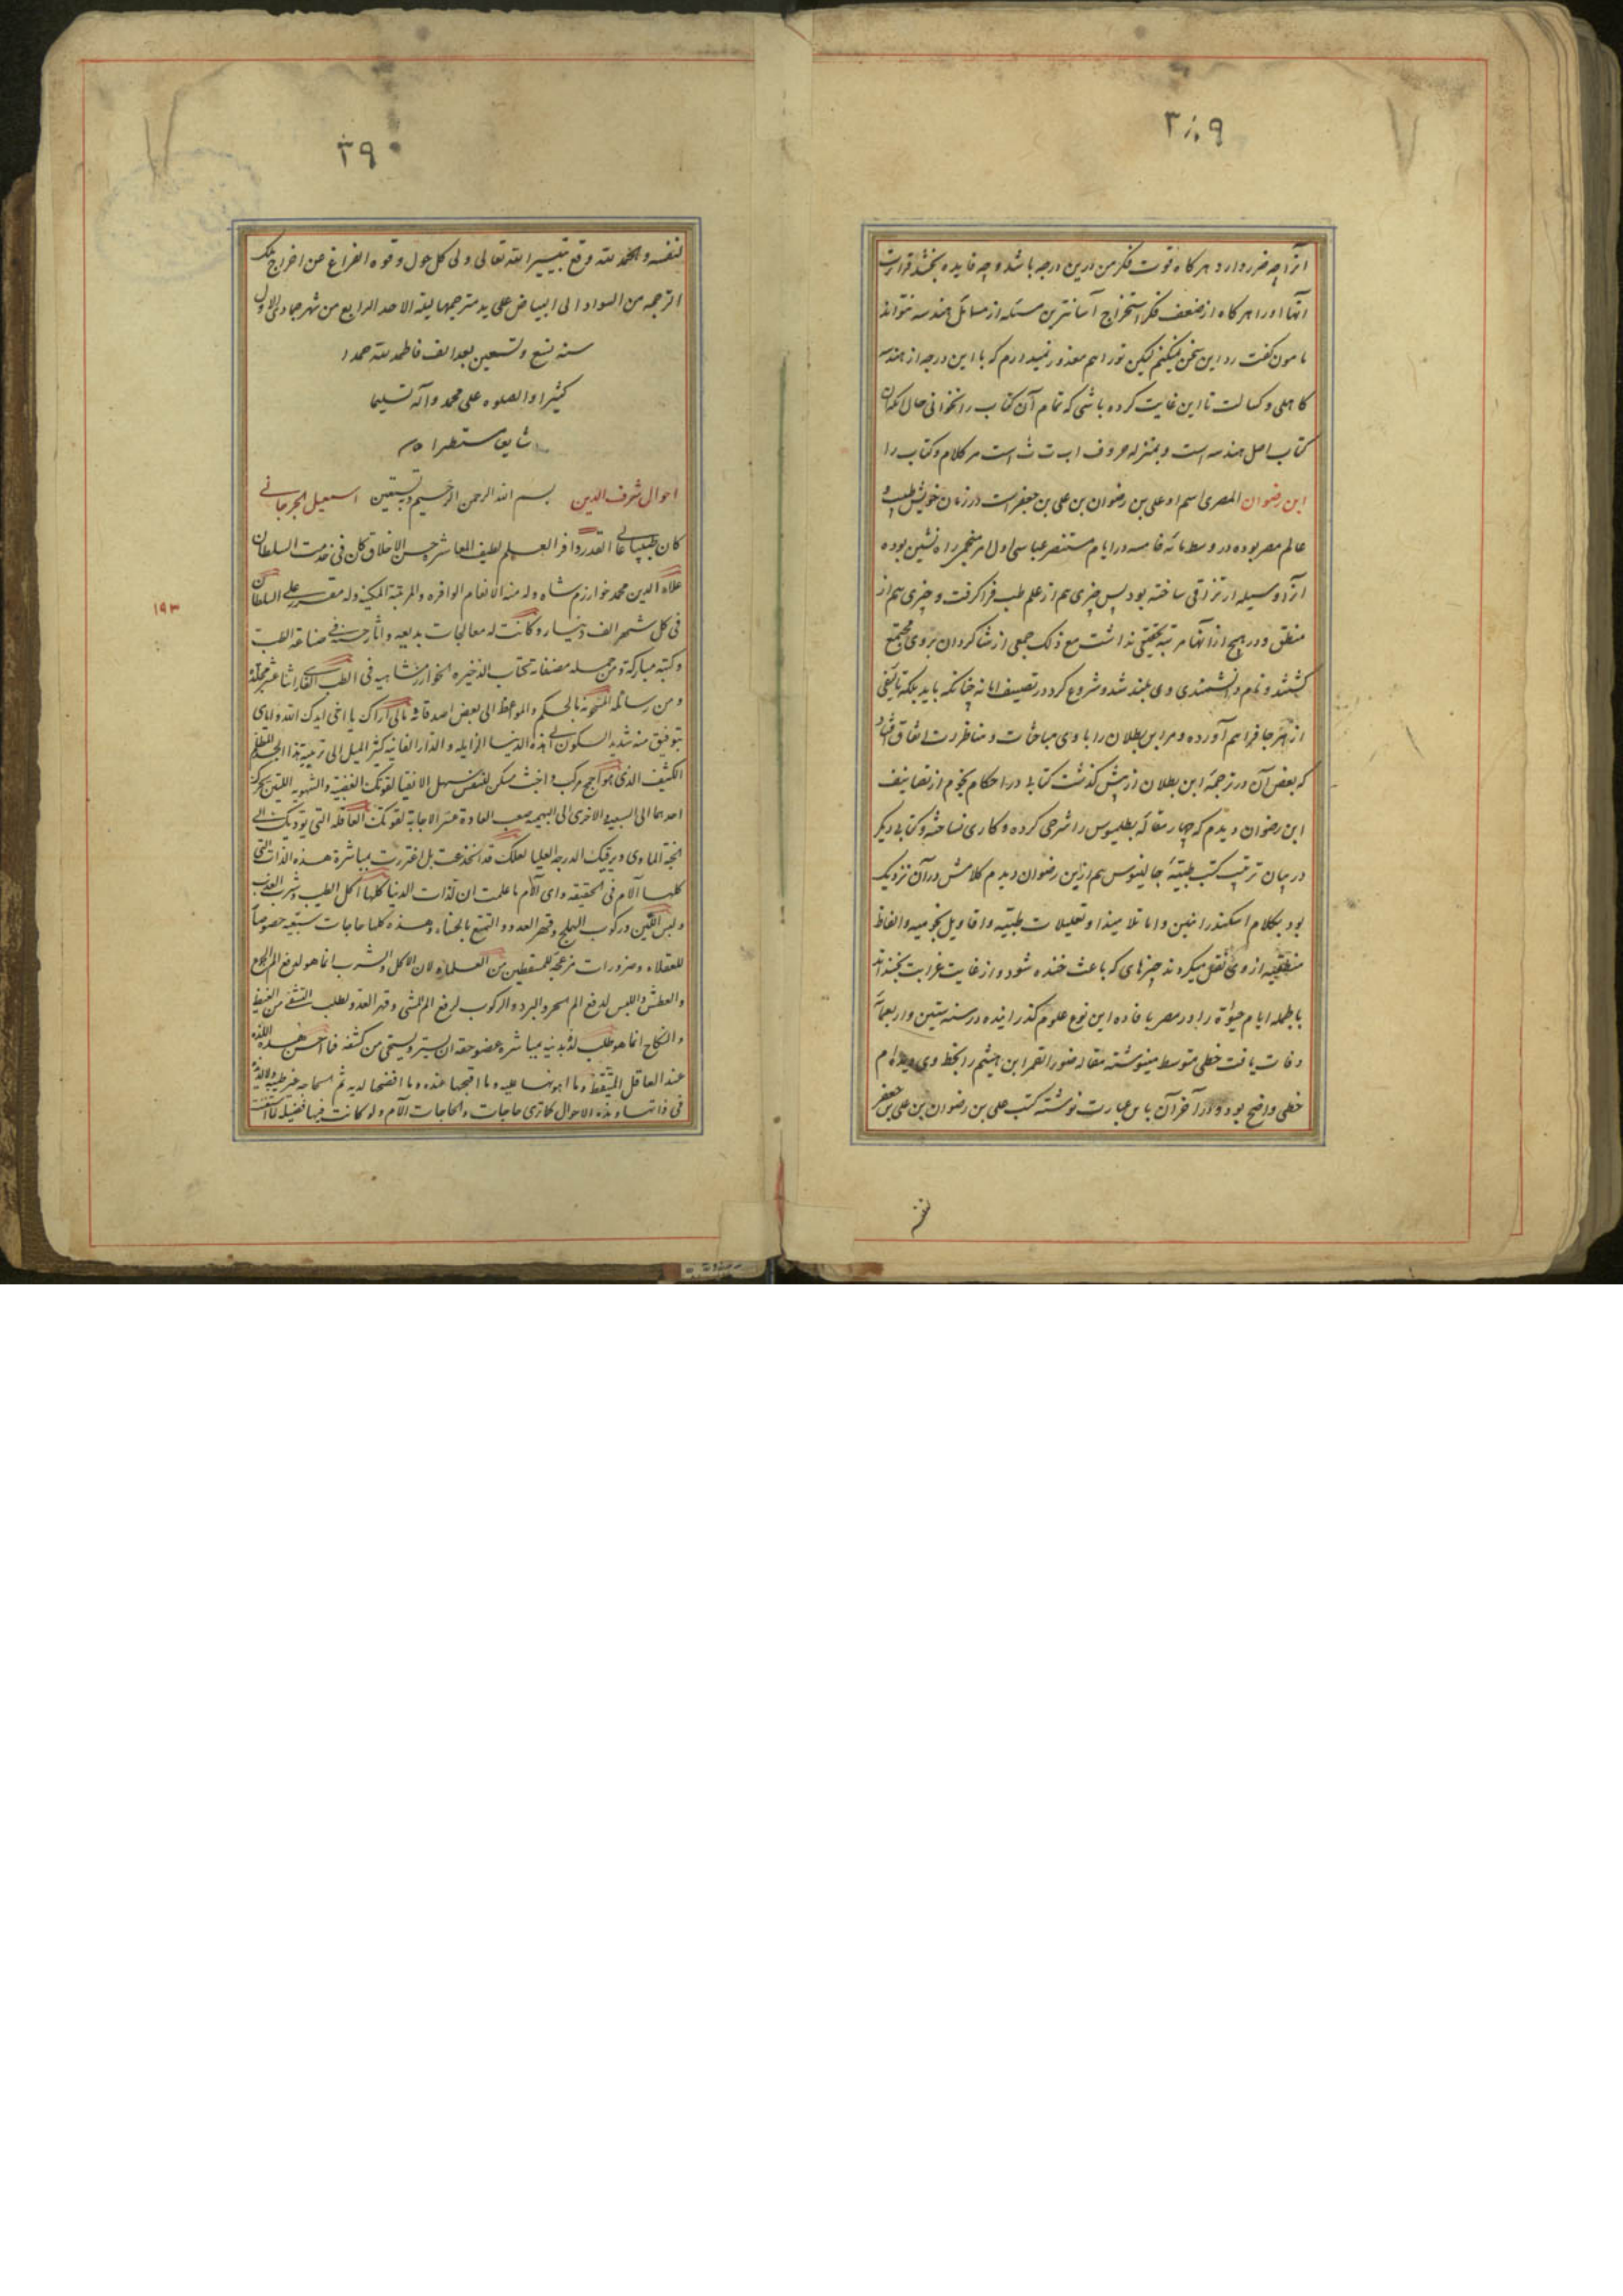 ۳۸۹
آنرا چه ضرر دارد هرکاه قوت فکر من درین درجه باشد و چه فایده بخشد قراءت
آنها او را هرکاه از ضعف فکر استخراج آسانترین مسئله از مسائل هندسه نتواند
مامون کفت رد این سخن نمیکنم لیکن تو را هم معذور نمیدارم که با این درجه از هندسه
کاهلی و کسالت تا این غایت کرده باشی که تمام آن کتاب را نخوانی حال آنکه آن
کتاب اصل هندسه است و بمنزله حروف ا ب ت ث است مر کلام و کتاب را
ابن رضوان المصری اسم او علی بن رضوان بن علی بن جعفر است در زمان خویش طبیب و
عالم مصر بوده در وسط مائه خامسه در ایام مستنصر عباسی اول امر منجمی راه نشین بوده
آنرا وسیله ارتزاق ساخته بود پس چیزی هم از علم طب فرا کرفت و چیزی هم از
منطق و در هیچ از آنها مرتبه تحقیقی نداشت مع ذلک جمعی از شاکردان بر وی مجتمع
کشتند و نام دانشمندی وی بلند شد و شروع کرد در تصنیف اما نه چنانکه باید بلکه تالیفی
از هر جا فراهم آورده و مر ابن بطلان را با وی مباحثات و مناظرات اتفاق افتاد
که بعض آن در ترجمه ابن بطلان از پیش کذشت کتابی در احکام نجوم از تصانیف
ابن رضوان دیدم که چهار مقاله بطلیموس را شرحی کرده و کاری نساخته و کتابی دیکر
در بیان ترتیب کتب طبیّه جالینوس هم ازین رضوان دیدم کلامش در آن نزدیک
بود بکلام اسکندرانیین و اما تلامیذ او تعلیلات طبیّه و اقاویل نجومیه و الفاظ
منطقیه از وی نقل میکردند چیزهای که باعث خنده شود و از غایت غرابت بخنداند
بالجمله ایام حیوة را در مصر بافاده این نوع علوم کذرانیده در سنه ستین و اربعمائة
وفات یافت خطی متوسط مینوشته مقاله ضوء القمر ابن هیثم را بخط وی دیده ام
خطی واضح بود و در آخر آن باین عبارت نوشته کتب علی بن رضوان بن علی بن جعفر
۳۹۰
لنفسه و الحمد لله وقع بتیسیر الله تعالی ولی کل حول و قوه الفراغ من اخراج تلک
الترجمه من السواد الی البیاض علی ید مترجمها لیلة الاحد الرابع من شهر جمادی الاول
سنه تسع و تسعین بعد الف فاحمد لله حمدا
کثیرا و الصلوه علی محمد و آله تسلیما
احوال شرف الدین بسم الله الرحمن الرحیم و نستعین اسمعیل الجرجانی
کان طبیبا عالی القدر وافر العلم لطیف المعاشره حسن الاخلاق کان فی خدمت السلطان
علاء الدین محمد خوارزم شاه و له منه الانعام الوافره و المرتبة المکینه و له مقرر علی السلطان
فی کل شهر الف دینار و کانت له معالجات بدیعه و آثار حسنه فی صناعة الطب
و کتبه مبارکة و من جمله مصنفاته کتاب الذخیره الخوارزمشاهیه فی الطب الفارسی اثنا عشر مجلدة
و من رسائله المشحونه بالحکم و المواعظ الی بعض اصدقائه مالی اراک یا اخی ایدک الله و ایای
بتوفیق منه شدید السکون الی هذه الدنیا الزایله و الدار الفانیه کثیر المیل الی تربیة هذا الجسد المظلم
الکثیف الذی هو اجمح مرکب و اخبث مسکن للنفس سهل الانقیاد لقوتک الغضبیه و الشهویه اللتین تجرک
احدهما الی السبعیه و الاخری الی البهیمیه صعب العادة عسر الاجابة لقوتک العاقله التی تودیک الی
الجنة الماوی و یرقیک الدرجه العلیا لعلک قد انخدعت بل اغتررت بمباشرة هذه اللذات التی
کلها آلام فی الحقیقه و ای آلام ما علمت ان لذات الدنیا کلها اکل الطیب و شرب العذب
و لبس اللین و رکوب الهملج و قهر العدو و التمتع بالحسناء و هذه کلها حاجات سبعیه خصوصاً
للعقلاء و ضرورات مزعجة للمتیقظین من العلماء لان الاکل و الشرب انما هو لدفع الم الجوع
و العطش و اللبس لدفع الم الحر و البرد و الرکوب لرفع الم المشی و قهر العدو لطلب التشفی من الغیظ
و النکاح انما هو طلب لذة بدنیه بمباشرة عضو حقه ان یستر و یستحی من کشفه فما احسن هذه اللذة
عند العاقل المتیقظ و ما اهونها علیه و ما اقبحها عنده و ما افضحها لدیه ثم انها مع غیر طیبه و لا لذیذة
فی ذاتها و هذه الاحوال کما تری حاجات و الحاجات آلام و لو کانت فیها فضیله لما استغنت
۱۹۳